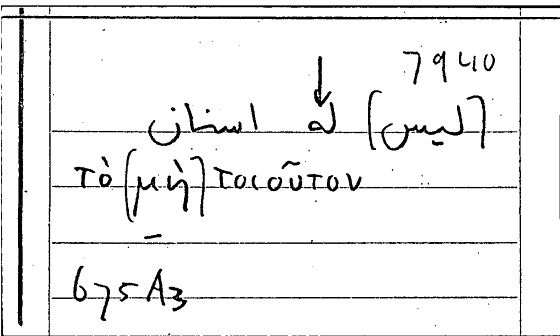 7940
[ليس] له اسنان
τὸ [μὴ] τοιοῦτον
675A3